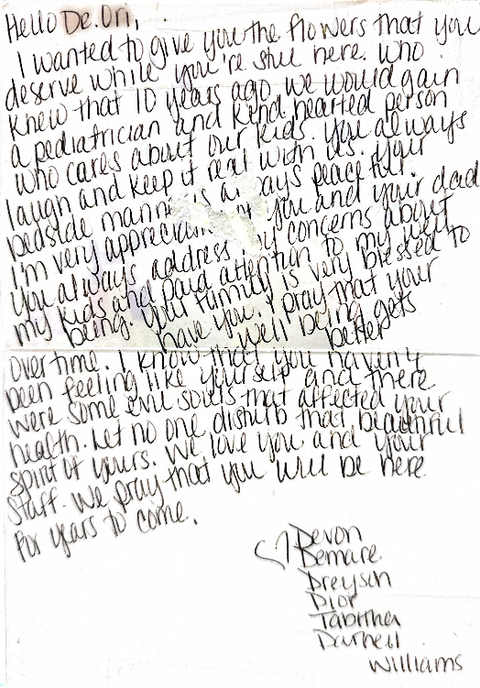 Hello De.Ori,
I wanted to give you the flowers that you
deserve while you're still here. Who
knew that 10 years ago, we would gain
a pediatrician and kind hearted person
who cares about our kids. You always
laugh and keep it real with us. Your
bedside manner is always peaceful.
I'm very appreciative of you and your dad
You always address my concerns about
my kids and paid attention to my well
being. Your family is very blessed to
have you. I pray that your
well being gets
better
over time. I know that you haven't
been feeling like yourself and there
were some evil souls that affected your
health. Let no one disturb that beautiful
spirit of yours. We love you and your
staff. We pray that you will be here
for years to come.
Devon
Demare
Dreysen
Dior
Tabitha
Darnell
Williams